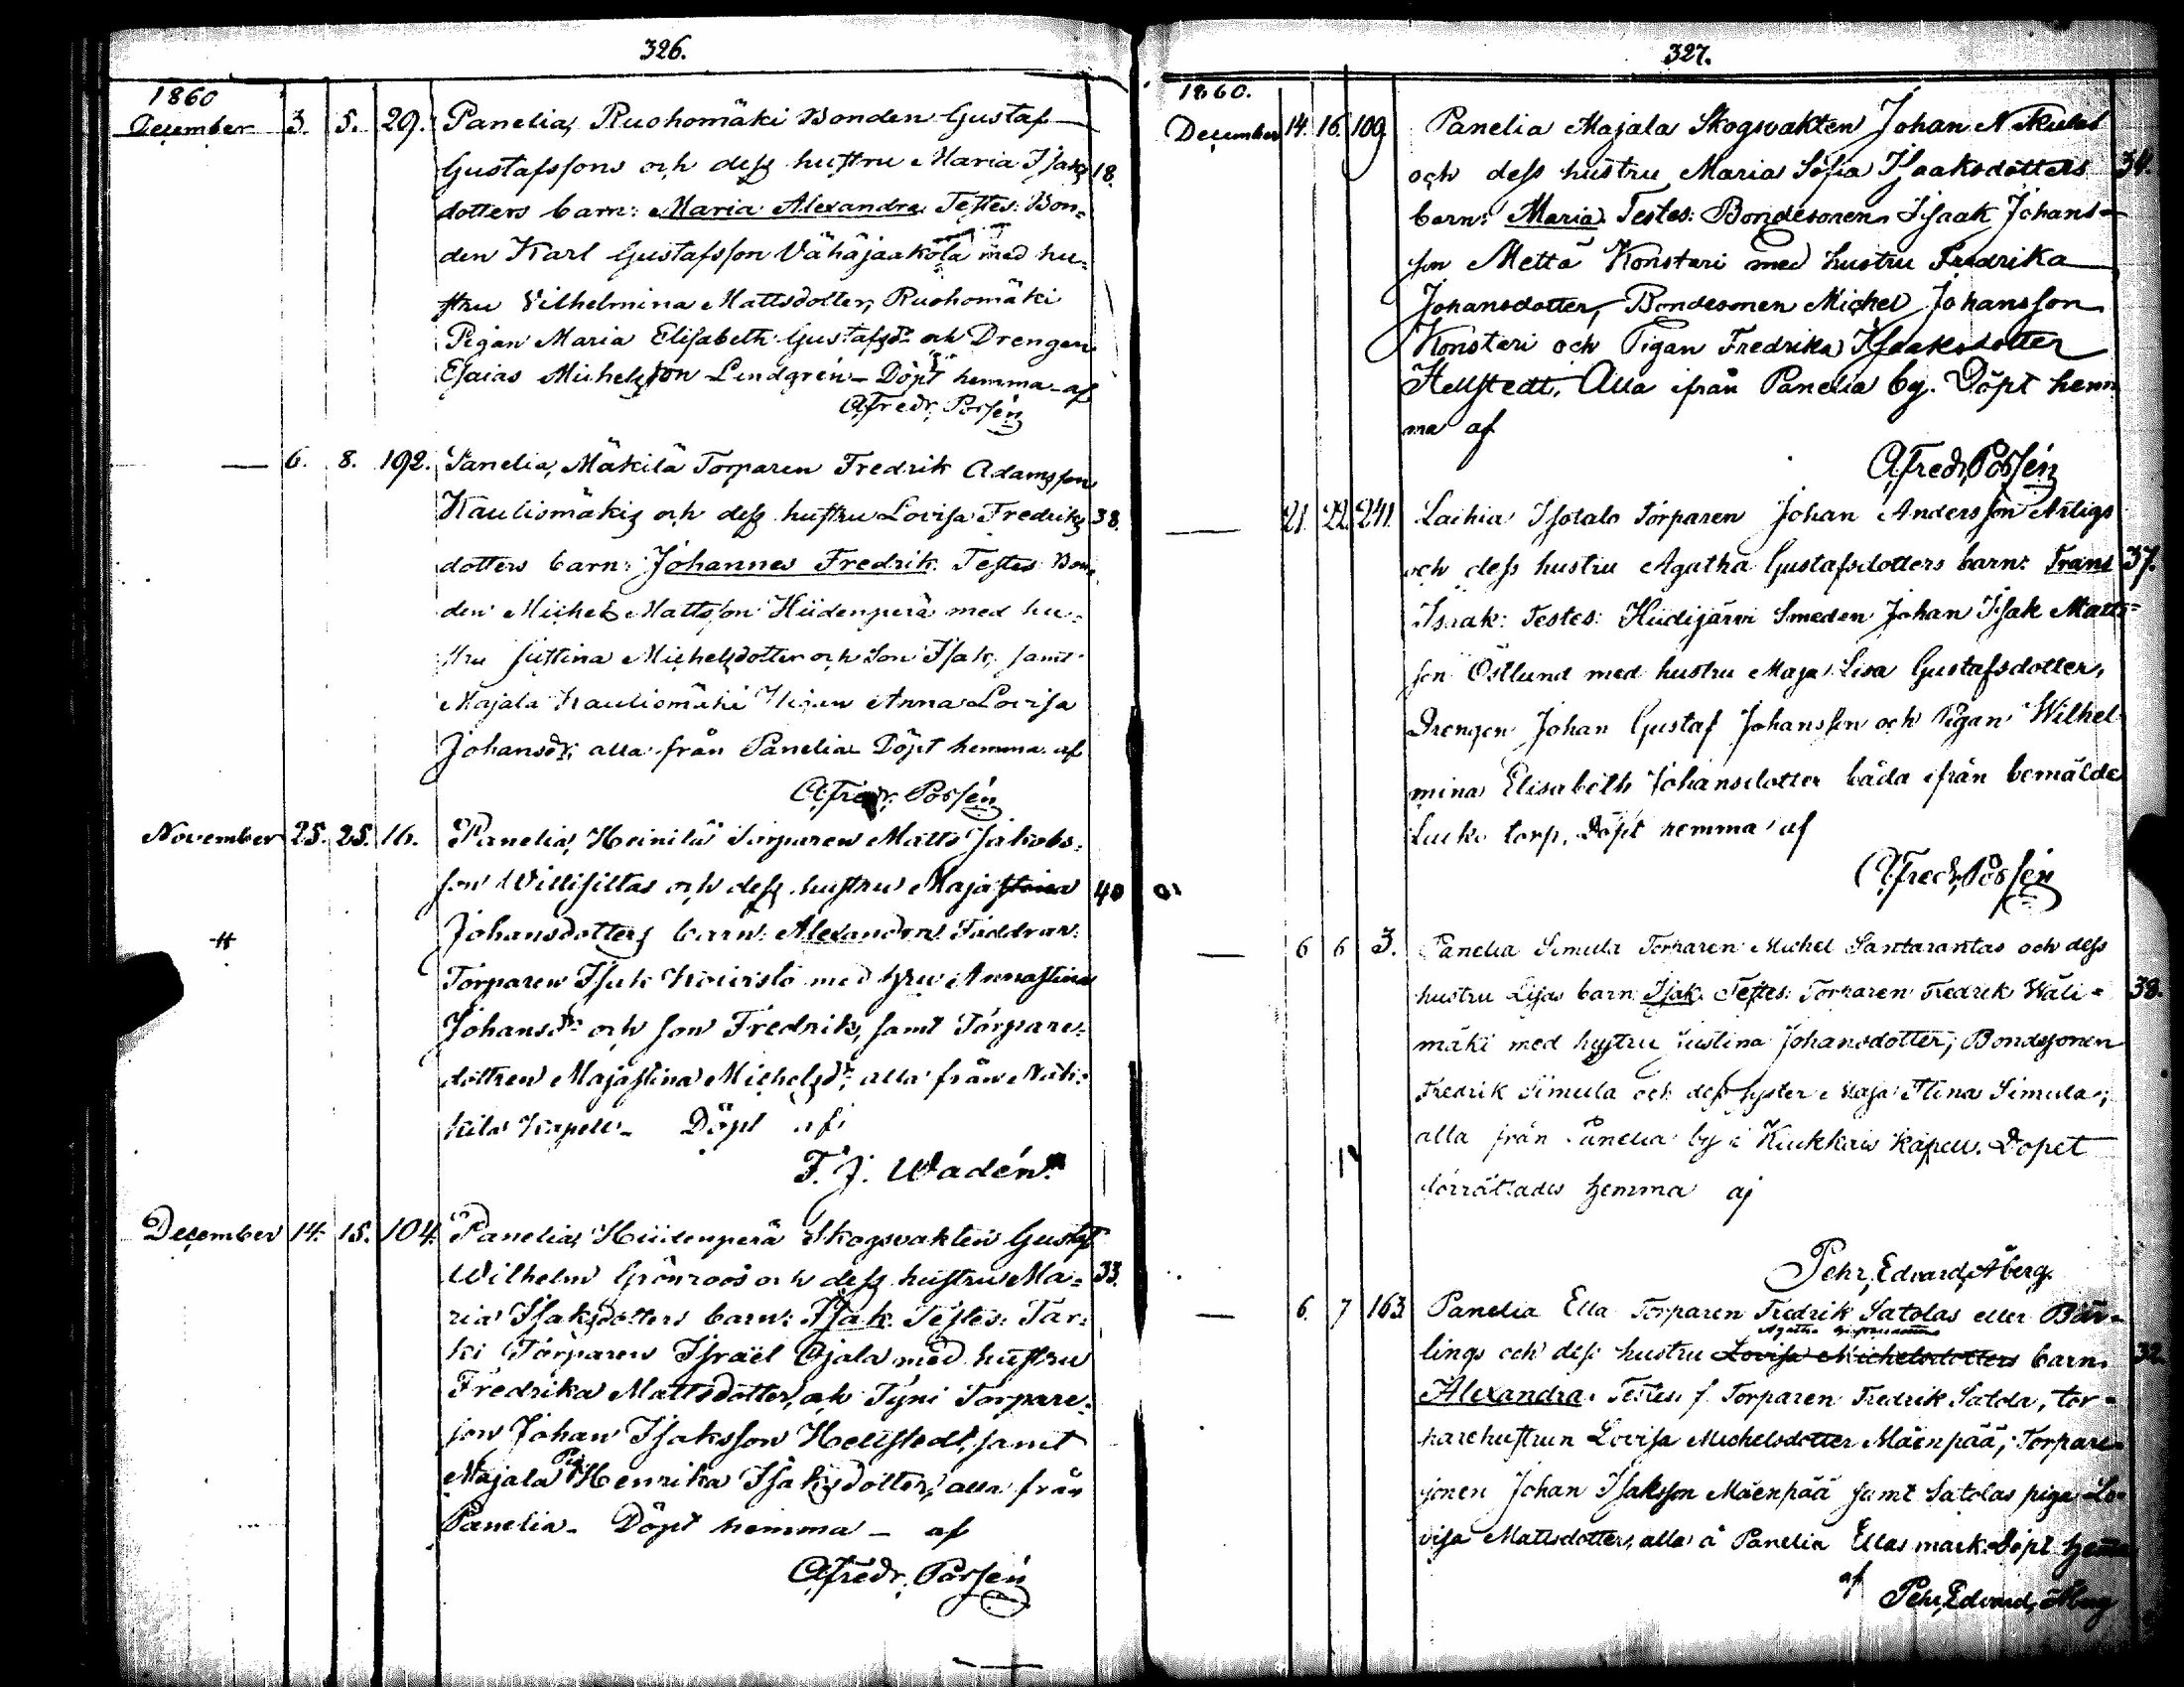 326.
1860
December 3. 5. 29. Panelia, Ruohomäki Bonden Gustaf
Gustafssons och dess hustru Maria Isaks 18.
dotters barn: Maria Alexandra. Testes: Bon=
den Karl Gustafsson Vähäjaakola med hu=
stru Vilhelmina Mattsdotter, Ruohomäki
Pigan Maria Elisabeth Gustafsdr och Drengen
Esaias Michelsson Lindgrén - Döpt hemma af
A Fredr. Possén
— 6. 8. 192. Panelia, Mäkilä Torparen Fredrik Adamsson
Kauliomäkis och dess hustru Lovisa Fredriks 38.
dotters barn: Johannes Fredrik. Testes Bon=
den Michel Mattsson Hiidenperä med hu=
stru Justina Michelsdotter och Son Isak, samt
Majala Kauliomäki Anna Lovisa
Johansdr, alla från Panelia Döpt hemma af
A Fredr. Possén
November 25. 25. 16. Panelia, Heinilä Torparen Matts Jakobs=
son Willisillas och dess hustru Maja Stina 40
Johansdotters barn: Alexandra Faddrar:
Torparen Isak med hru Annastina
Johansdr och son Fredrik, samt Torpare=
dottren Majastina Michelsdr, alla från
kila Kapell - Döpt af
F. J. Wadén.
December 14. 15. 104. Panelia, Hiidenperä Skogsvakten Gustaf
Wilhelm Grönroos och dess hustru Ma= 33.
ria Isaksdotters barn: Isak. Testes: Tar=
ki Torparen Israël Ojala med hustru
Fredrika Mattsdotter, och Tyni Torpare=
son Johan Isaksson Hellstedt, samt
Majala Pig. Henrika Isaksdotter, alla från
Panelia - Döpt hemma - af
A Fredr. Possén
327.
1860.
December 14. 16. 109 Panelia Majala Skogsvakten Johan
och dess hustru Maria Sofia Isaaksdotters 34.
barn: Maria. Testes: Bondesonen Isaak Johans=
son Mettä Konstari med hustru Fredrika
Johansdotter, Bondesonen Michel Johansson
Konstari och Pigan Fredrika Isaaksdotter
Hellstedt, Alla ifrån Panelia by. Döpt hem
ma af
A Fredr. Possén
— 21. 22. 241. Laihia Isotalo Torparen Johan Andersson Ärligs
och dess hustru Agatha Gustafsdotters barn: Frans 37.
Isaak: Testes: Hiidijärvi Smeden Johan Isak Matts=
son Östlund med hustru Maja Lisa Gustafsdotter,
Drengen Johan Gustaf Johansson och Pigan Wilhel
mina Elisabeth Johansdotter båda ifrån bemälde
torp. Döpt hemma af
A Fredr. Possén
— 6 6 3. Panelia Simula Torparen Michel Santarantas och dess
hustru Lisas barn Isak. Testes: Torparen Fredrik Wäli= 38.
mäki med hustru Justina Johansdotter; Bondsonen
Fredrik Simula och dess syster Maja Stina Simula;
alla från Panelia by i Kiukkais kapell. Dopet
förrättades hemma af
Pehr Edvard Åberg.
— 6. 7 163 Panelia Ella Torparen Fredrik Satolas eller Bär=
Agatha
lings och dess hustru Lovisa Michelsdotters barn 32
Alexandra. Testes f Torparen Fredrik Satola, tor=
parehustrun Lovisa Michelsdotter Mäenpää; Torpare=
sonen Johan Isaksson Mäenpää samt Satolas piga Lo=
visa Mattsdotter, alla å Panelia Ellas mark. Döpt hemma
af Pehr Edvard Åberg